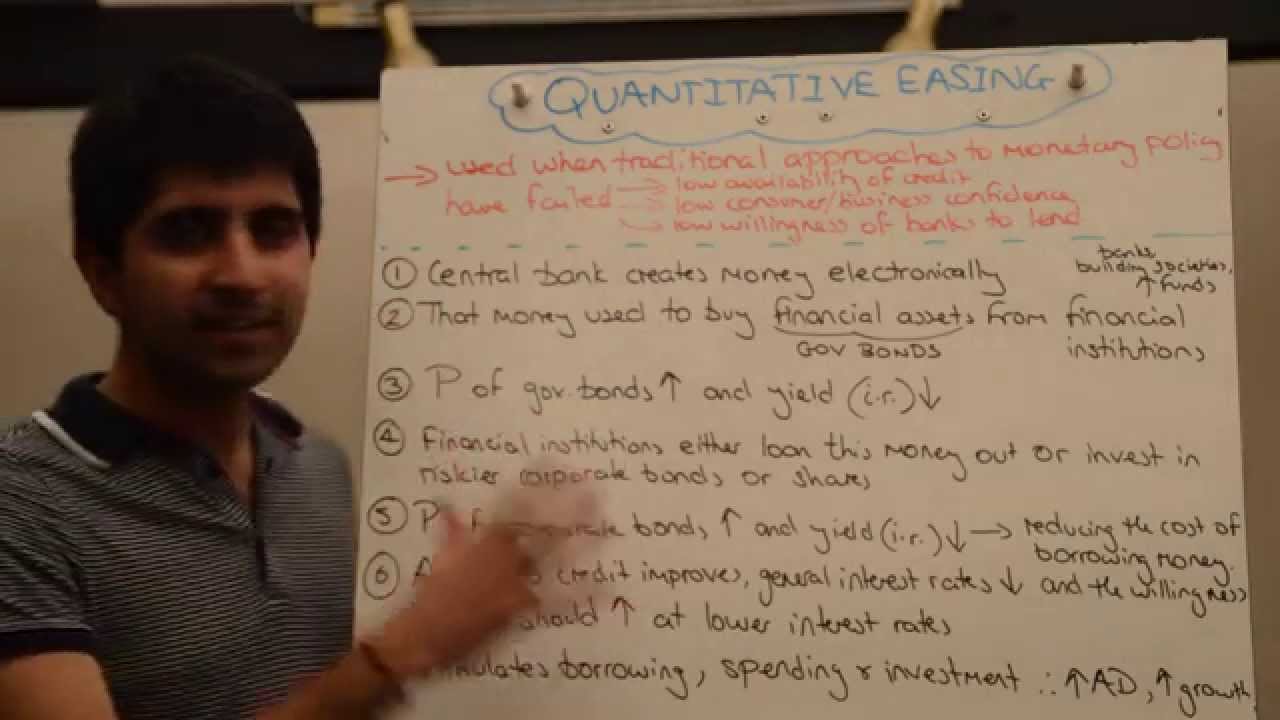 QUANTITATIVE EASING
→ used when traditional approaches to monetary policy
have failed → low availability of credit
→ low consumer/business confidence
→ low willingness of banks to lend
① Central bank creates money electronically
banks,
building societies,
↑ funds
② That money used to buy financial assets from financial
institutions
GOV BONDS
③ P of gov. bonds ↑ and yield (i.r.) ↓
④ Financial institutions either loan this money out or invest in
riskier corporate bonds or shares
⑤ P bonds ↑ and yield (i.r.) ↓ → reducing the cost of
borrowing money.
⑥ credit improves, general interest rates ↓ and the willingness
should ↑ at lower interest rates
borrowing, spending & investment ∴ ↑ AD, ↑ growth